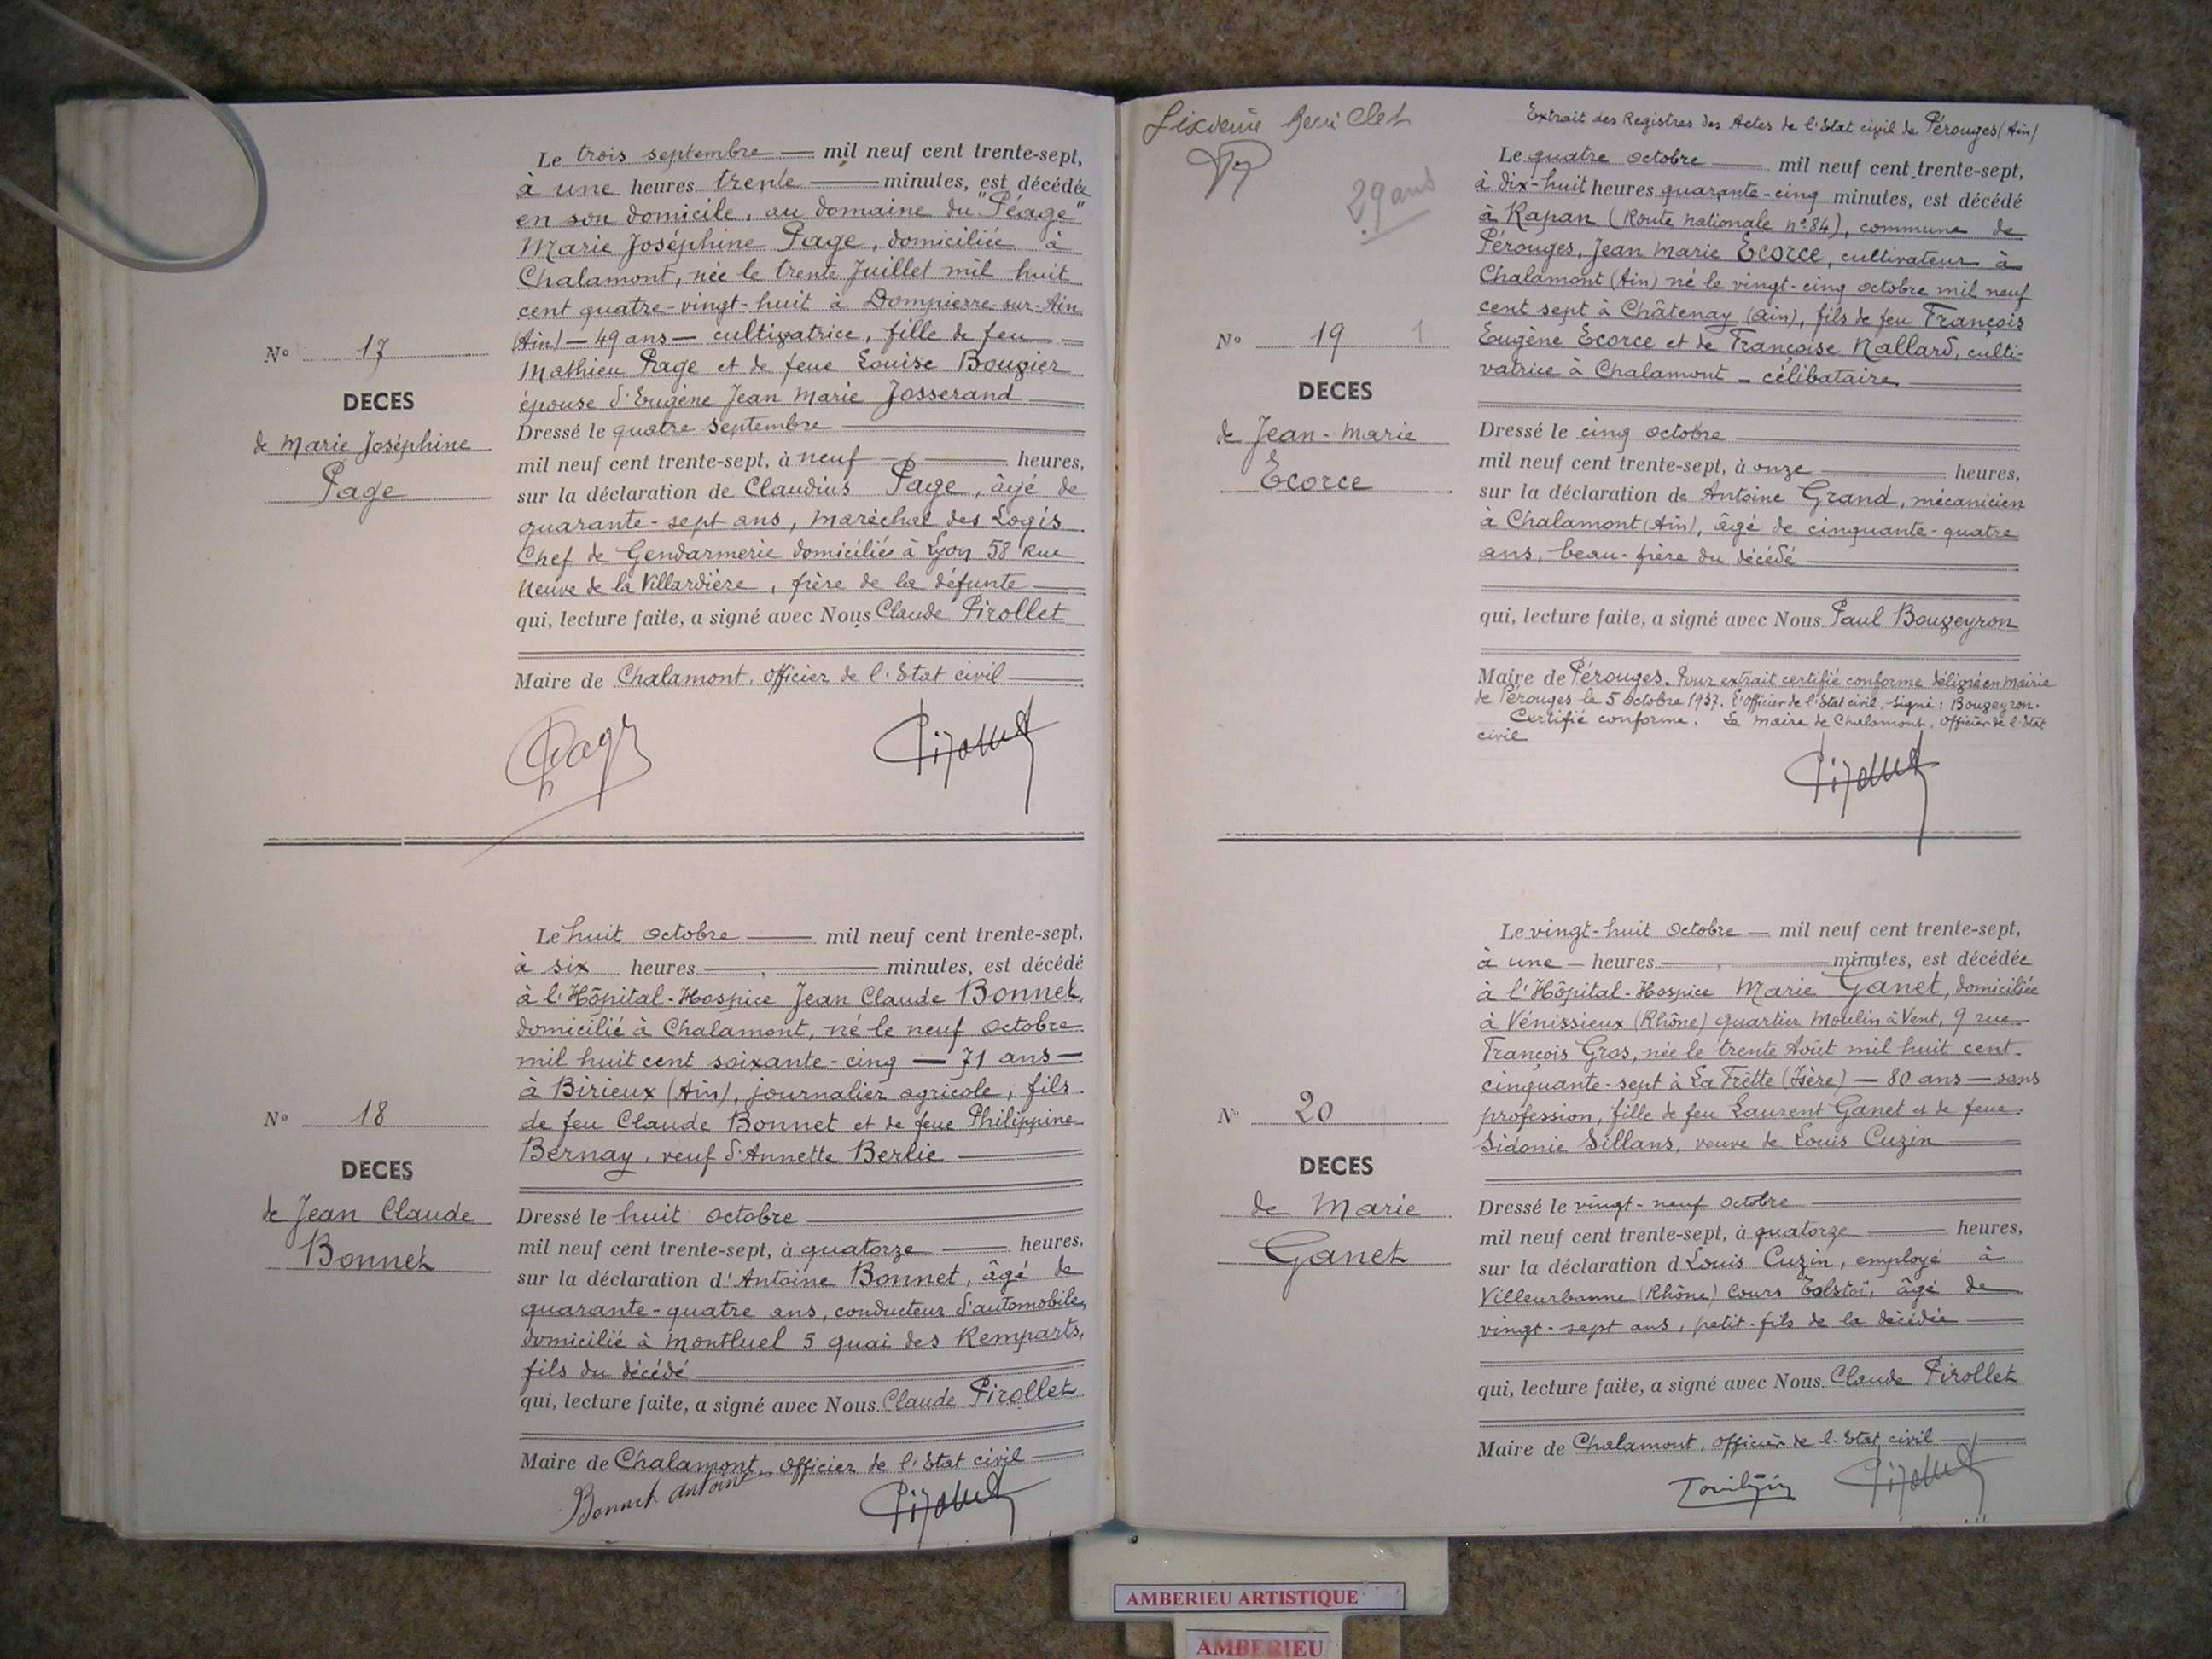 Le trois septembre mil neuf cent trente-sept,
à une heures trente minutes, est décédée
en son domicile, au domaine du "Péage"
Marie Joséphine Page, domiciliée à
Chalamont, née le trente Juillet mil huit
cent quatre-vingt-huit à Dompierre-sur-Ain
(Ain) — 49 ans — cultivatrice, fille de feu
Mathieu Page et de feue Louise Bougier
épouse d'Eugène Jean Marie Josserand
N° 17
DECES
de Marie Joséphine
Page
Dressé le quatre septembre
mil neuf cent trente-sept, à neuf heures,
sur la déclaration de Claudius Page, âgé de
quarante-sept ans, maréchal des Logis
Chef de Gendarmerie domicilié à Lyon 58 Rue
Neuve de la Villardière, frère de la défunte
qui, lecture faite, a signé avec Nous Claude Pirollet
Maire de Chalamont, officier de l'Etat civil
Page Pirollet
Le huit octobre mil neuf cent trente-sept,
à six heures minutes, est décédé
à l'Hôpital-Hospice Jean Claude Bonnet,
domicilié à Chalamont, né le neuf octobre
mil huit cent soixante-cinq — 71 ans —
à Birieux (Ain), journalier agricole, fils
de feu Claude Bonnet et de feue Philippine
Bernay, veuf d'Annette Berlie
N° 18
DECES
de Jean Claude
Bonnet
Dressé le huit octobre
mil neuf cent trente-sept, à quatorze heures,
sur la déclaration d'Antoine Bonnet, âgé de
quarante-quatre ans, conducteur d'automobile,
domicilié à Montluel 5 quai des Remparts,
fils du décédé
qui, lecture faite, a signé avec Nous Claude Pirollet
Maire de Chalamont, officier de l'Etat civil
Bonnet Antoine Pirollet
29 ans
Extrait des Registres des Actes de l'Etat civil de Pérouges (Ain)
Le quatre octobre mil neuf cent trente-sept,
à dix-huit heures quarante-cinq minutes, est décédé
à Rapan (Route nationale n° 84), commune de
Pérouges, Jean Marie Ecorce, cultivateur à
Chalamont (Ain) né le vingt-cinq octobre mil neuf
cent sept à Châtenay (Ain), fils de feu François
Eugène Ecorce et de Françoise Nallard, culti-
vatrice à Chalamont — célibataire
N° 19 1
DECES
de Jean-Marie
Ecorce
Dressé le cinq octobre
mil neuf cent trente-sept, à onze heures,
sur la déclaration de Antoine Grand, mécanicien
à Chalamont (Ain), âgé de cinquante-quatre
ans, beau-frère du décédé
qui, lecture faite, a signé avec Nous Paul Bougeyron
Maire de Pérouges. Pour extrait certifié conforme délivré en Mairie
de Pérouges le 5 octobre 1937. l'officier de l'Etat civil, signé : Bougeyron.
Certifié conforme. Le Maire de Chalamont, officier de l'Etat
civil
Pirollet
Le vingt-huit octobre — mil neuf cent trente-sept,
à une heures minutes, est décédée
à l'Hôpital-Hospice Marie Ganet, domiciliée
à Vénissieux (Rhône) quartier Moulin à Vent, 9 rue
François Gros, née le trente Août mil huit cent
cinquante-sept à La Frette (Isère) — 80 ans — sans
profession, fille de feu Laurent Ganet et de feue
Sidonie Sillans, veuve de Louis Cuzin
N° 20
DECES
de Marie
Ganet
Dressé le vingt-neuf octobre
mil neuf cent trente-sept, à quatorze heures,
sur la déclaration d Louis Cuzin, employé à
Villeurbanne (Rhône) Cours Tolstoï, âgé de
vingt-sept ans, petit-fils de la décédée
qui, lecture faite, a signé avec Nous Claude Pirollet
Maire de Chalamont, officier de l'Etat civil
Pirollet
AMBERIEU ARTISTIQUE
AMBERIEU